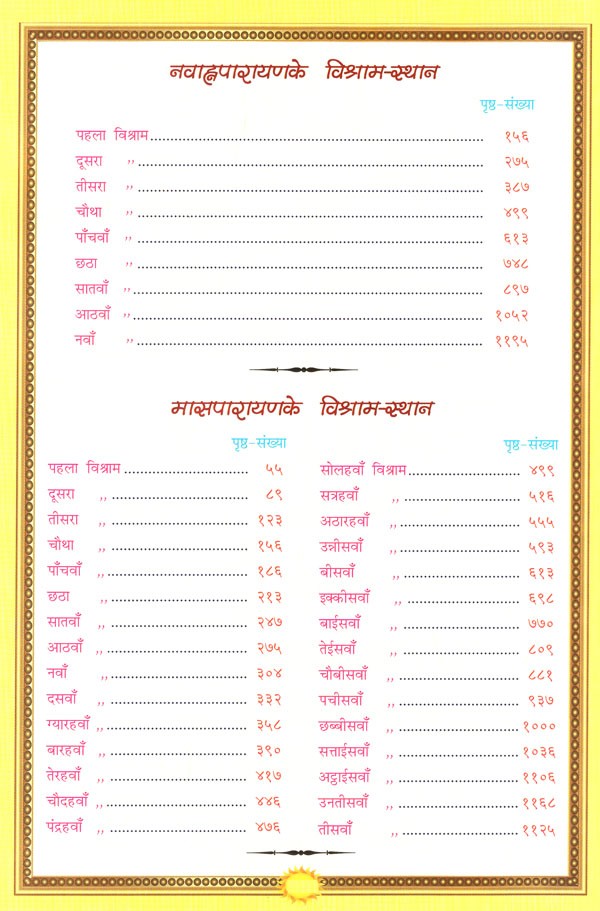 नवाह्नपारायणके विश्राम-स्थान
पृष्ठ-संख्या
पहला विश्राम........................१५६
दूसरा ,,........................२७५
तीसरा ,,........................३८७
चौथा ,,........................४९९
पाँचवाँ ,,........................६१३
छठा ,,........................७४८
सातवाँ ,,........................८९७
आठवाँ ,,........................१०५२
नवाँ ,,........................११९५
मासपारायणके विश्राम-स्थान
पृष्ठ-संख्या
पहला विश्राम........................५५
दूसरा ,,........................८९
तीसरा ,,........................१२३
चौथा ,,........................१५६
पाँचवाँ ,,........................१८६
छठा ,,........................२१३
सातवाँ ,,........................२४७
आठवाँ ,,........................२७५
नवाँ ,,........................३०४
दसवाँ ,,........................३३२
ग्यारहवाँ ,,........................३५८
बारहवाँ ,,........................३९०
तेरहवाँ ,,........................४१७
चौदहवाँ ,,........................४४६
पंद्रहवाँ ,,........................४७६
पृष्ठ-संख्या
सोलहवाँ विश्राम........................४९९
सत्रहवाँ ,,........................५१६
अठारहवाँ ,,........................५५५
उन्नीसवाँ ,,........................५९३
बीसवाँ ,,........................६१३
इक्कीसवाँ ,,........................६९८
बाईसवाँ ,,........................७७०
तेईसवाँ ,,........................८०९
चौबीसवाँ ,,........................८८१
पचीसवाँ ,,........................९३७
छब्बीसवाँ ,,........................१०००
सत्ताईसवाँ ,,........................१०३६
अट्ठाईसवाँ ,,........................११०६
उनतीसवाँ ,,........................११६८
तीसवाँ ,,........................११२५